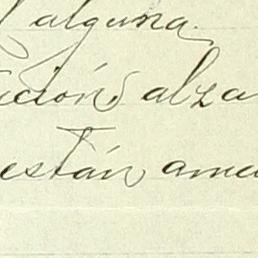 alguna.
ición, alza
están ame